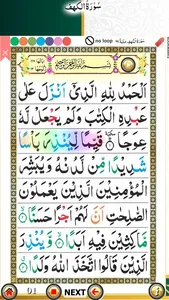 سُوْرَةُ الْكَهْفِ
no loop
بِسْمِ اللّٰهِ الرَّحْمٰنِ الرَّحِيْمِ
اَلْحَمْدُ لِلّٰهِ الَّذِیْۤ اَنْزَلَ عَلٰی
عَبْدِهِ الْكِتٰبَ وَلَمْ یَجْعَلْ لَّهٗ
عِوَجًا قَیِّمًا لِّیُنْذِرَ بَاْسًا
شَدِیْدًا مِّنْ لَّدُنْهُ وَیُبَشِّرَ
الْمُؤْمِنِیْنَ الَّذِیْنَ یَعْمَلُوْنَ
الصّٰلِحٰتِ اَنَّ لَهُمْ اَجْرًا حَسَنًا
مَّاكِثِیْنَ فِیْهِ اَبَدًا وَّیُنْذِرَ
الَّذِیْنَ قَالُوا اتَّخَذَ اللّٰهُ وَلَدًا
01 NEXT